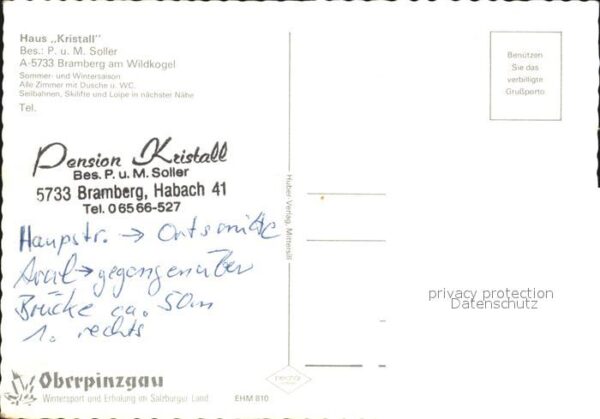 Haus „Kristall"
Bes.: P. u. M. Soller
A-5733 Bramberg am Wildkogel
Sommer- und Wintersaison
Alle Zimmer mit Dusche u. WC.
Seilbahnen, Skilifte und Loipe in nächster Nähe
Tel.
Benützen
Sie das
verbilligte
Grußporto
Pension Kristall
Bes. P. u. M. Soller
5733 Bramberg, Habach 41
Tel. 06566-527
Haupstr. → Ortsmitte
Aral → gegangenüber
Brücke ca. 50m
1. rechts
Huber-Verlag, Mittersill
privacy protection
Datenschutz
Oberpinzgau
Wintersport und Erholung im Salzburger Land
EHM 810